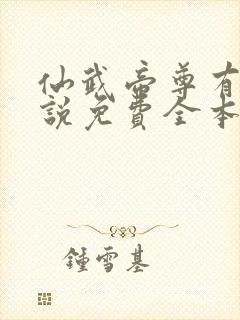 仙武帝尊有
說免費全本
鍾雪基